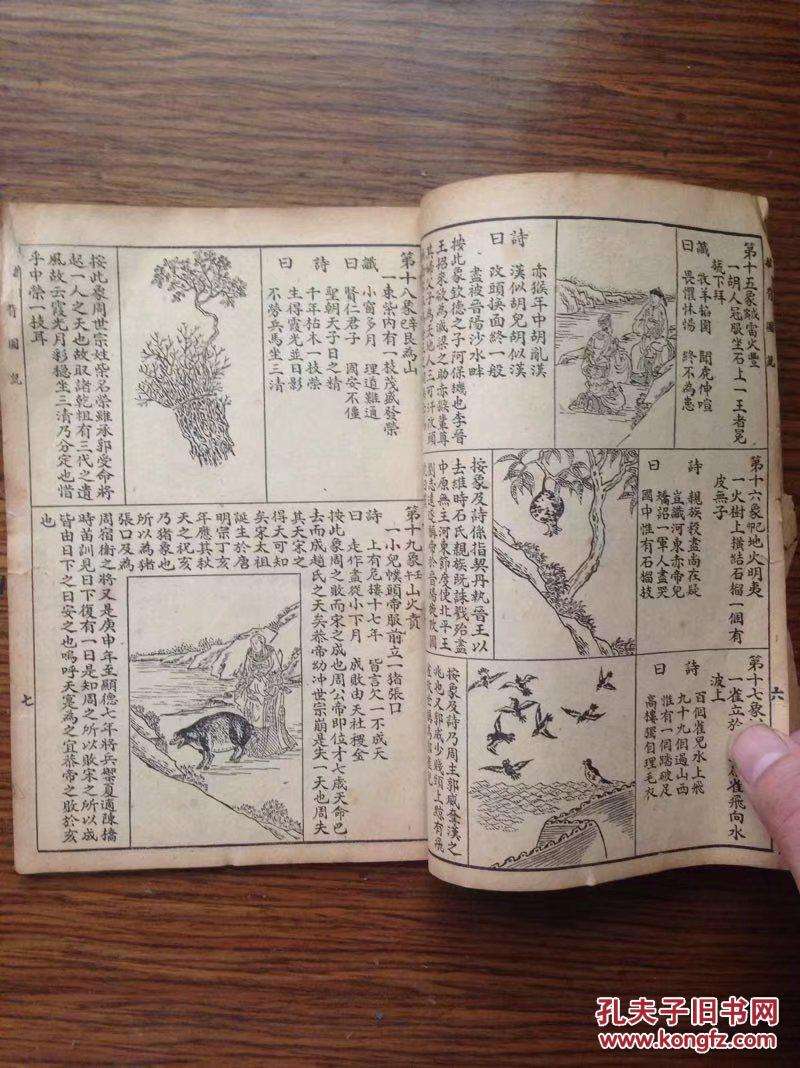 第十五象
雷火豐
一胡人冠服坐石上一王者冕
旒下拜
讖
曰
畏懼怵惕
終不為患
詩
曰
赤猴年中胡亂漢
漢似胡兒胡似漢
改頭換面終一般
盡樓晉陽沙水畔
按此象欽德之子阿保機也李晉
第十六象
地火明夷
一火樹上橫結石榴一個有
皮無子
詩
曰
親族殺盡尚在疑
豈識河東赤帝兒
矯詔一軍人盡哭
國中惟有石榴枝
按象及詩係指契丹執晉王以
去維時石氏親族既誅戮殆盡
中原無王河東節度使北平王
第十七象
一雀立於
雀飛向水
波上
詩
曰
百個雀兒水上飛
九十九個過山西
惟有一個踏破足
高樓獨自理毛衣
按象及詩乃周主郭威奪漢之
兆也又郭威少賤頭上
六
第十八象
艮為山
一束柴內有一枝茂盛發榮
讖
曰
小窗多月
理道難通
賢仁君子
國安不僵
詩
曰
聖朝天子日之精
千年枯木一枝榮
生得霞光並日影
不勞兵馬坐三清
按此象周世宗姓柴名榮維承郭受命將
起一人之天也故取諸乾祖有三代之遺
風故云霞光月彩穩坐三清乃分定也惜
乎中榮一枝耳
第十九象
山火賁
一小兒幞頭帝服前立一猪張口
詩
曰
上有尼摟十七年
皆言欠一不成天
走作盡從小下月
成敗由天社稷全
按此象周之敗而宋之成也周公帝即位才七歲天命已
去而成趙氏之天矣恭帝幼冲世宗崩是失一天也周夫
其天宋之
得天可知
矣宋太祖
誕生於唐
明宗丁亥
年應其秋
天之祝亥
乃猪象也
所以為猪
張口及為
周宿衛之將又是庚申年至顯德七年將兵禦夏適陳搞
時苗訓見日下復有一日是知周之所以敗宋之所以成
皆由日下之日安之也嗚呼天寔為之宜恭帝之敗於亥
也
七
孔夫子旧书网
www.kongfz.com